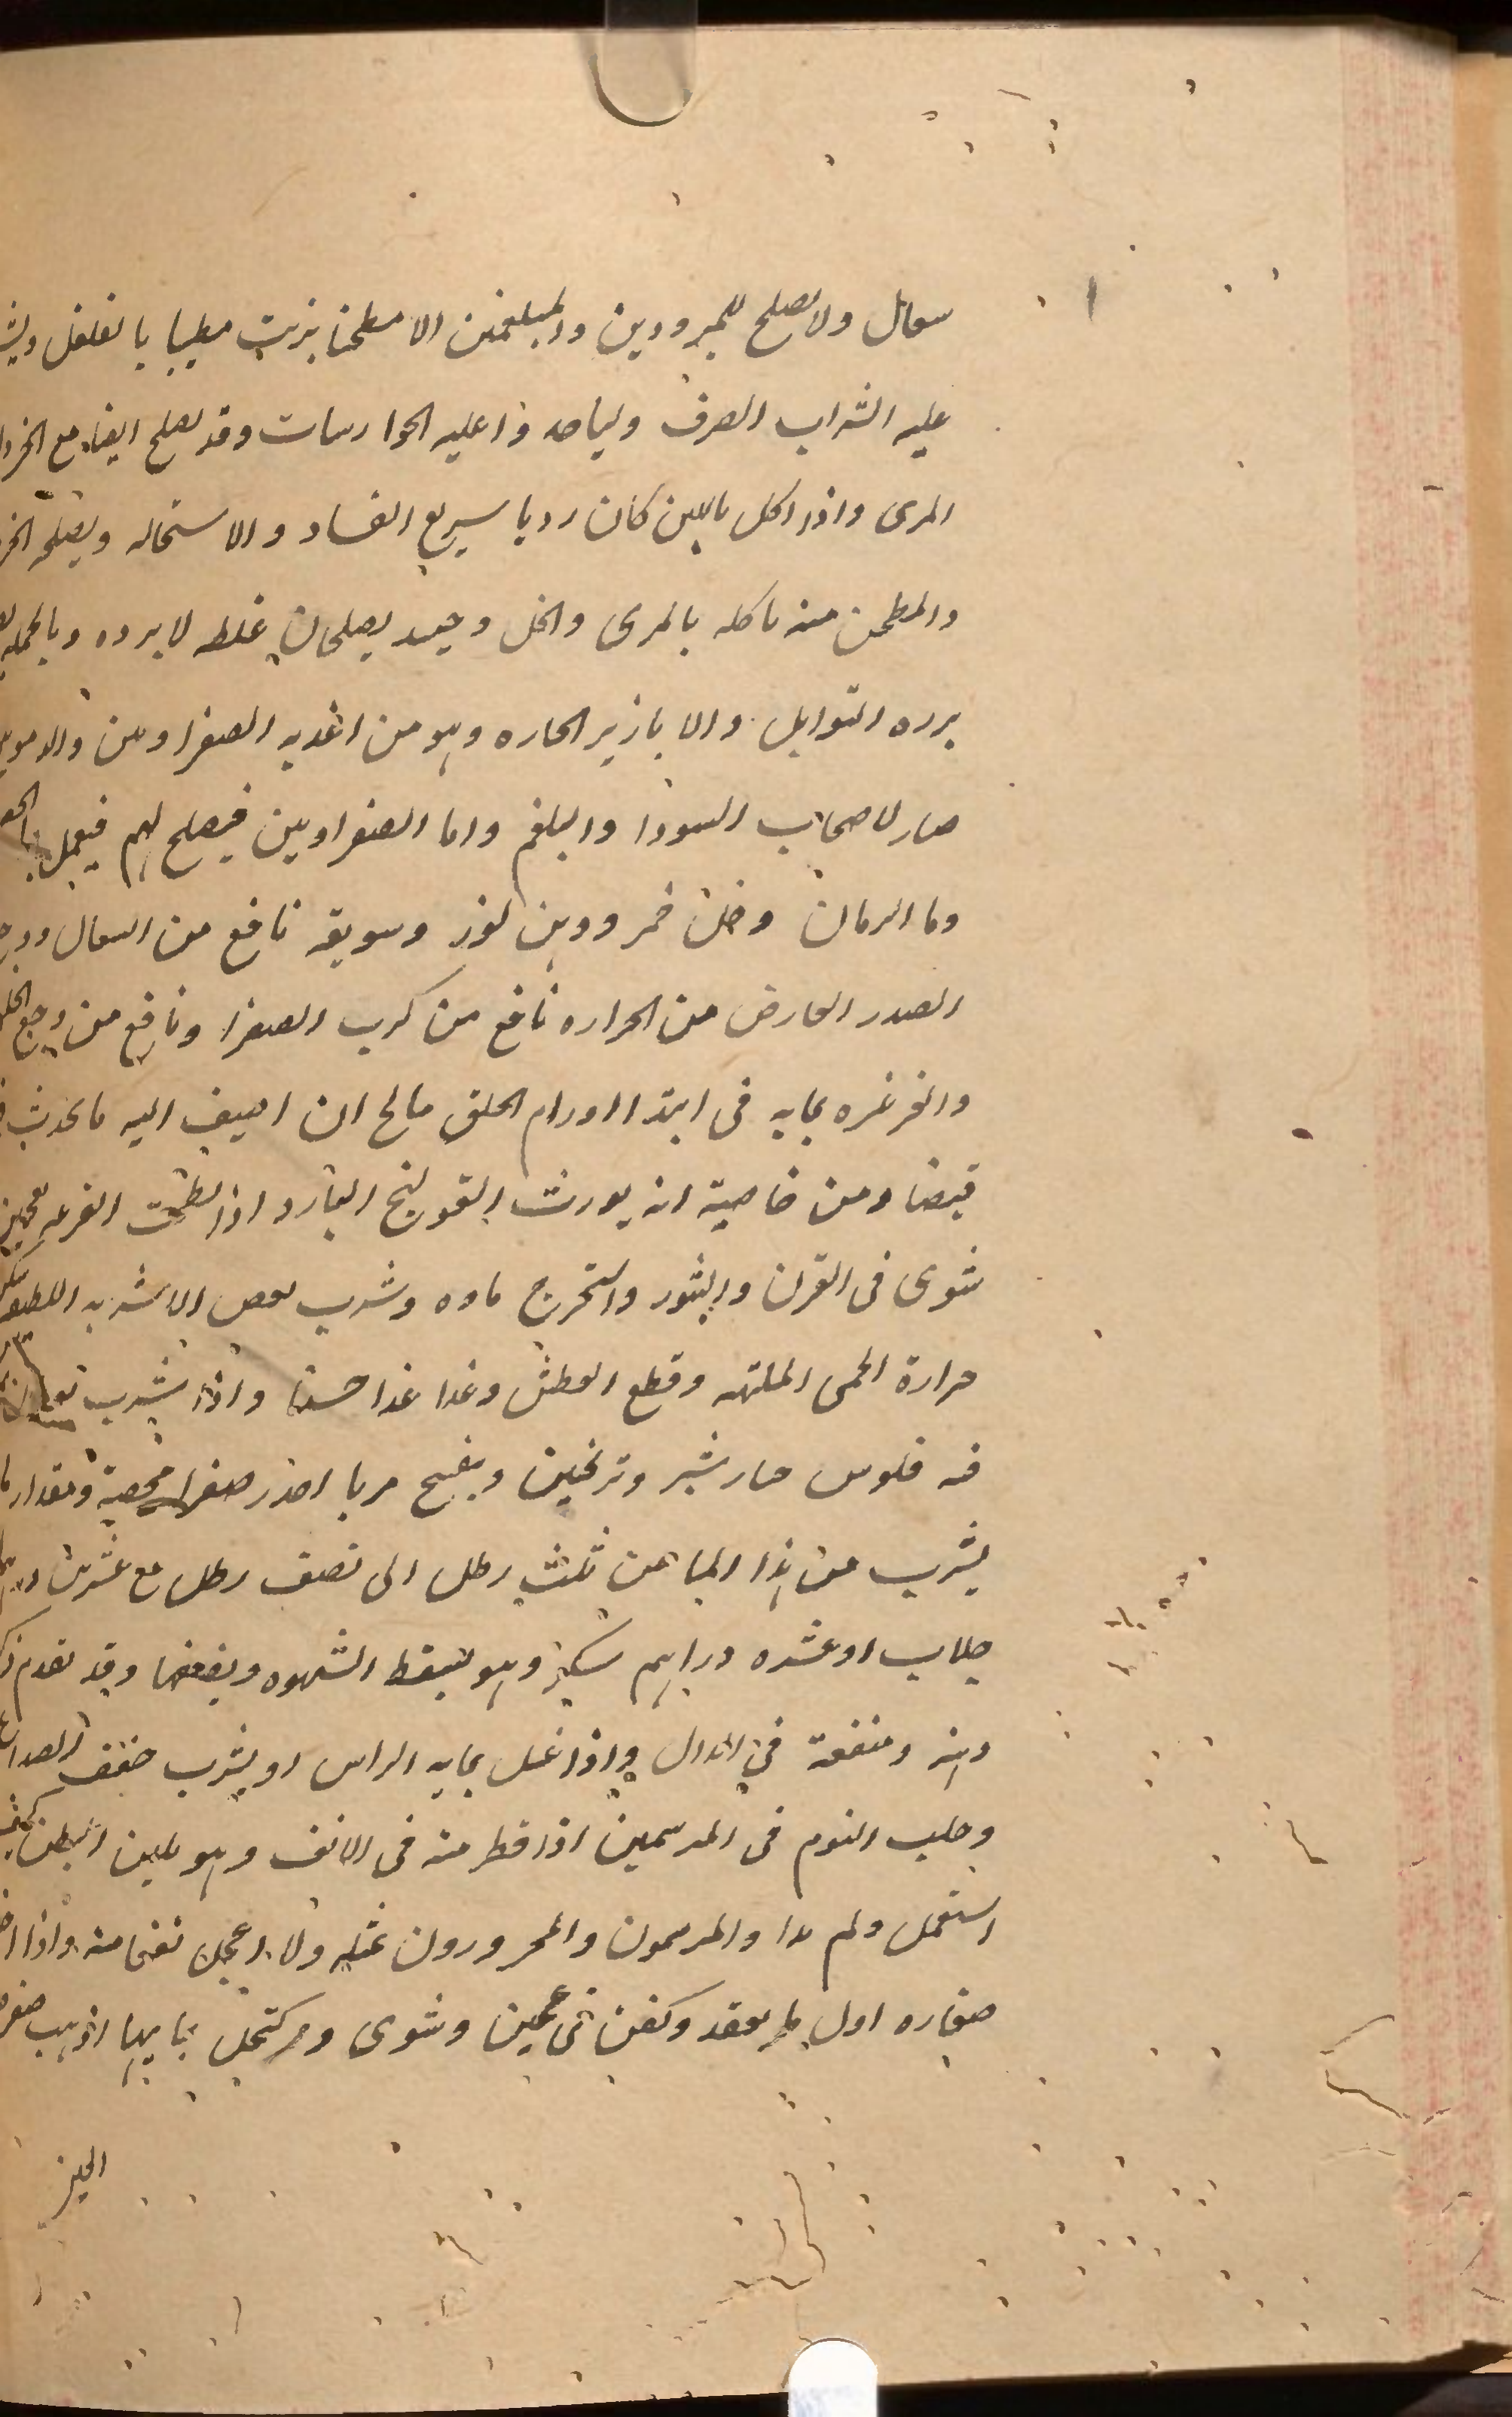 سعال ولا يصلح للمبرودين والمبلغمين الا مطجنا بزيت مطيبا بالفلفل
عليه الشراب الصرف ولياحدوا عليه الجوارسات وقد يصلح ايضا مع
المرى واذا اكل باللبن كان رديا سريع الفساد والاستحاله ويصلحه
والمطجن منه ناكله بالمرى والخل وحىىد يصلحان غلظه لا برده وبالجمله
برده التوابل والابازير الحاره وهو من اغديه الصفراوىىن والدمويىن
ضار لاصحاب السودا والبلغم واما الصفراويين فيصلح لهم فيعمل
وما الرمان وخل خمر ودهن لوز وسويقه نافع من السعال ووجع
الصدر العارض من الحراره نافع من كرب الصفرا ونافع من وجع الحلق
والغرغره بمايه فى ابتدا اورام الحلق صالح ان اضيف اليه ما يحدث
قبضا ومن خاصيته انه يورث القولنج البارد اذا لطخت القرعه بعجين
شوى فى الفرن والتنور واستخرج ماوه وشرب ببعض الاشربه اللطيفه
حرارة الحمى الملتهبه وقطع العطش وغدا غدا حسنا واذا شرب
فيه فلوس خيارشنبر وترنجبين وبنفسج مربا احدر صفرا محضة ومقدار ما
يشرب من هذا الما من ثلث رطل الى نصف رطل مع عشرين
جلاب او عشره دراهم سكر وهو يسقط الشهوه ويضعفها وقد تقدم
دهنه ومنفعة فى الدال واذا غسل بمايه الراس او يشرب خفف الصداع
وجلب النوم فى المبرسمين اذا قطر منه فى الانف وهو يلين البطن كيف
استعمل ولم يداوا المبرسمون والمحرورون بمثله ولا اعجل نفعا منه واذا
صغاره اول ما يعقد وكفن فى عجين وشوى واكتحل بمايها اذهب صفره
الجلبز